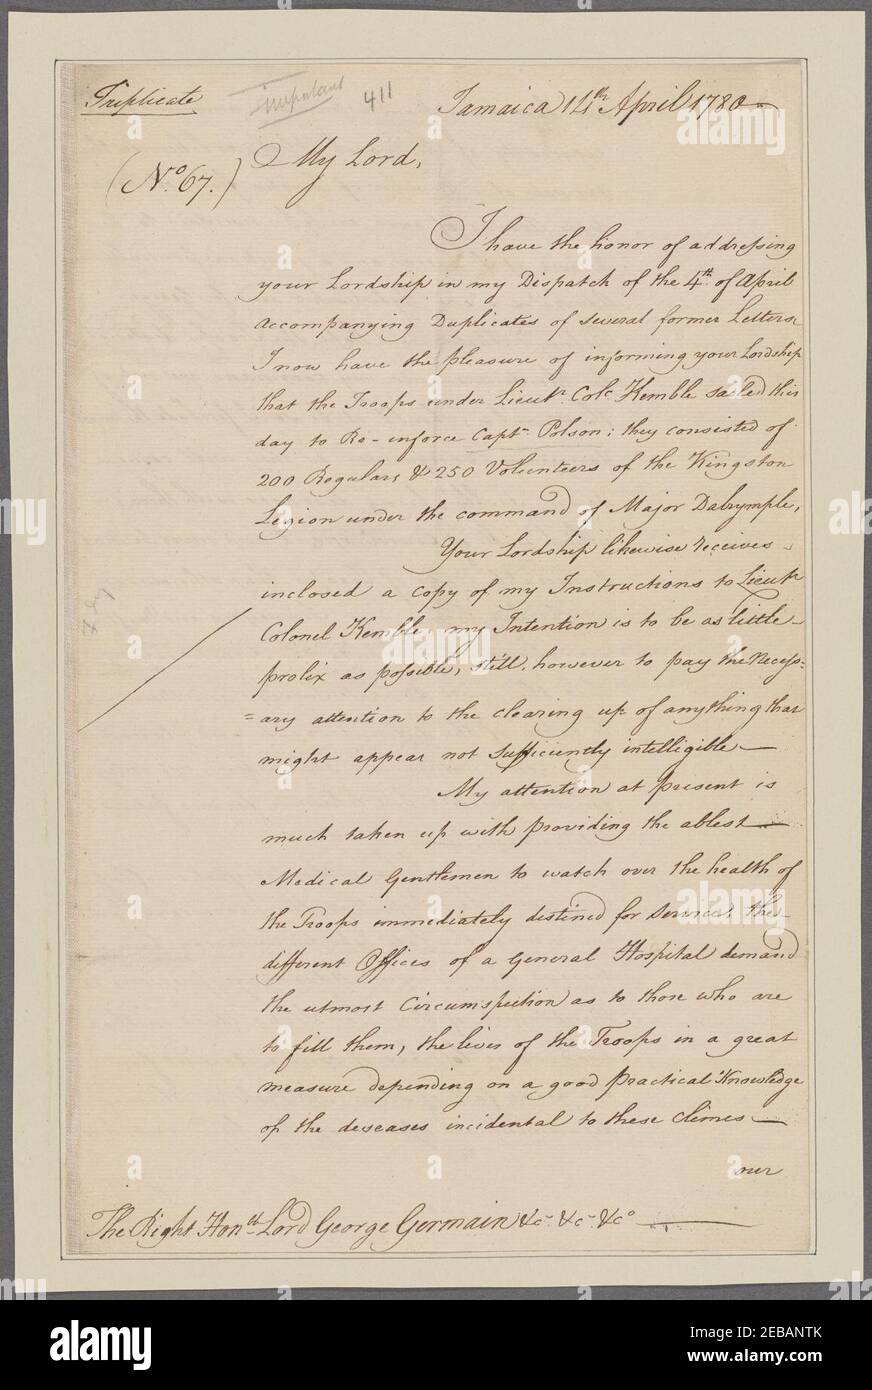 Triplicate
important
411
Jamaica 14th April 1780
(No. 67.)
My Lord,
I have the honor of addressing
your Lordship in my Dispatch of the 4th of April
accompanying Duplicates of several former Letters,
I now have the pleasure of informing your Lordship
that the Troops under Lieut. Col. Kemble sailed this
day to Re-inforce Capt. Polson; they consisted of
200 Regulars, & 250 Volunteers of the Kingston
Legion under the command of Major Dalrymple,
Your Lordship likewise receives
inclosed a copy of my Instructions to Lieut.
Colonel Kemble, my Intention is to be as little
prolix as possible, still, however to pay the Necess=
=ary attention to the clearing up of anything that
might appear not sufficiently intelligible
My attention at present is
much taken up with providing the ablest
Medical Gentlemen to watch over the health of
the Troops immediately destined for Service, the
different Offices of a General Hospital demand
the utmost Circumspection as to those who are
to fill them, the lives of the Troops in a great
measure depending on a good Practical Knowledge
of the deseases incidental to these Climes
our
The Right Honble. Lord George Germain &c. &c. &c.
alamy
Image ID: 2EBANTK
www.alamy.com